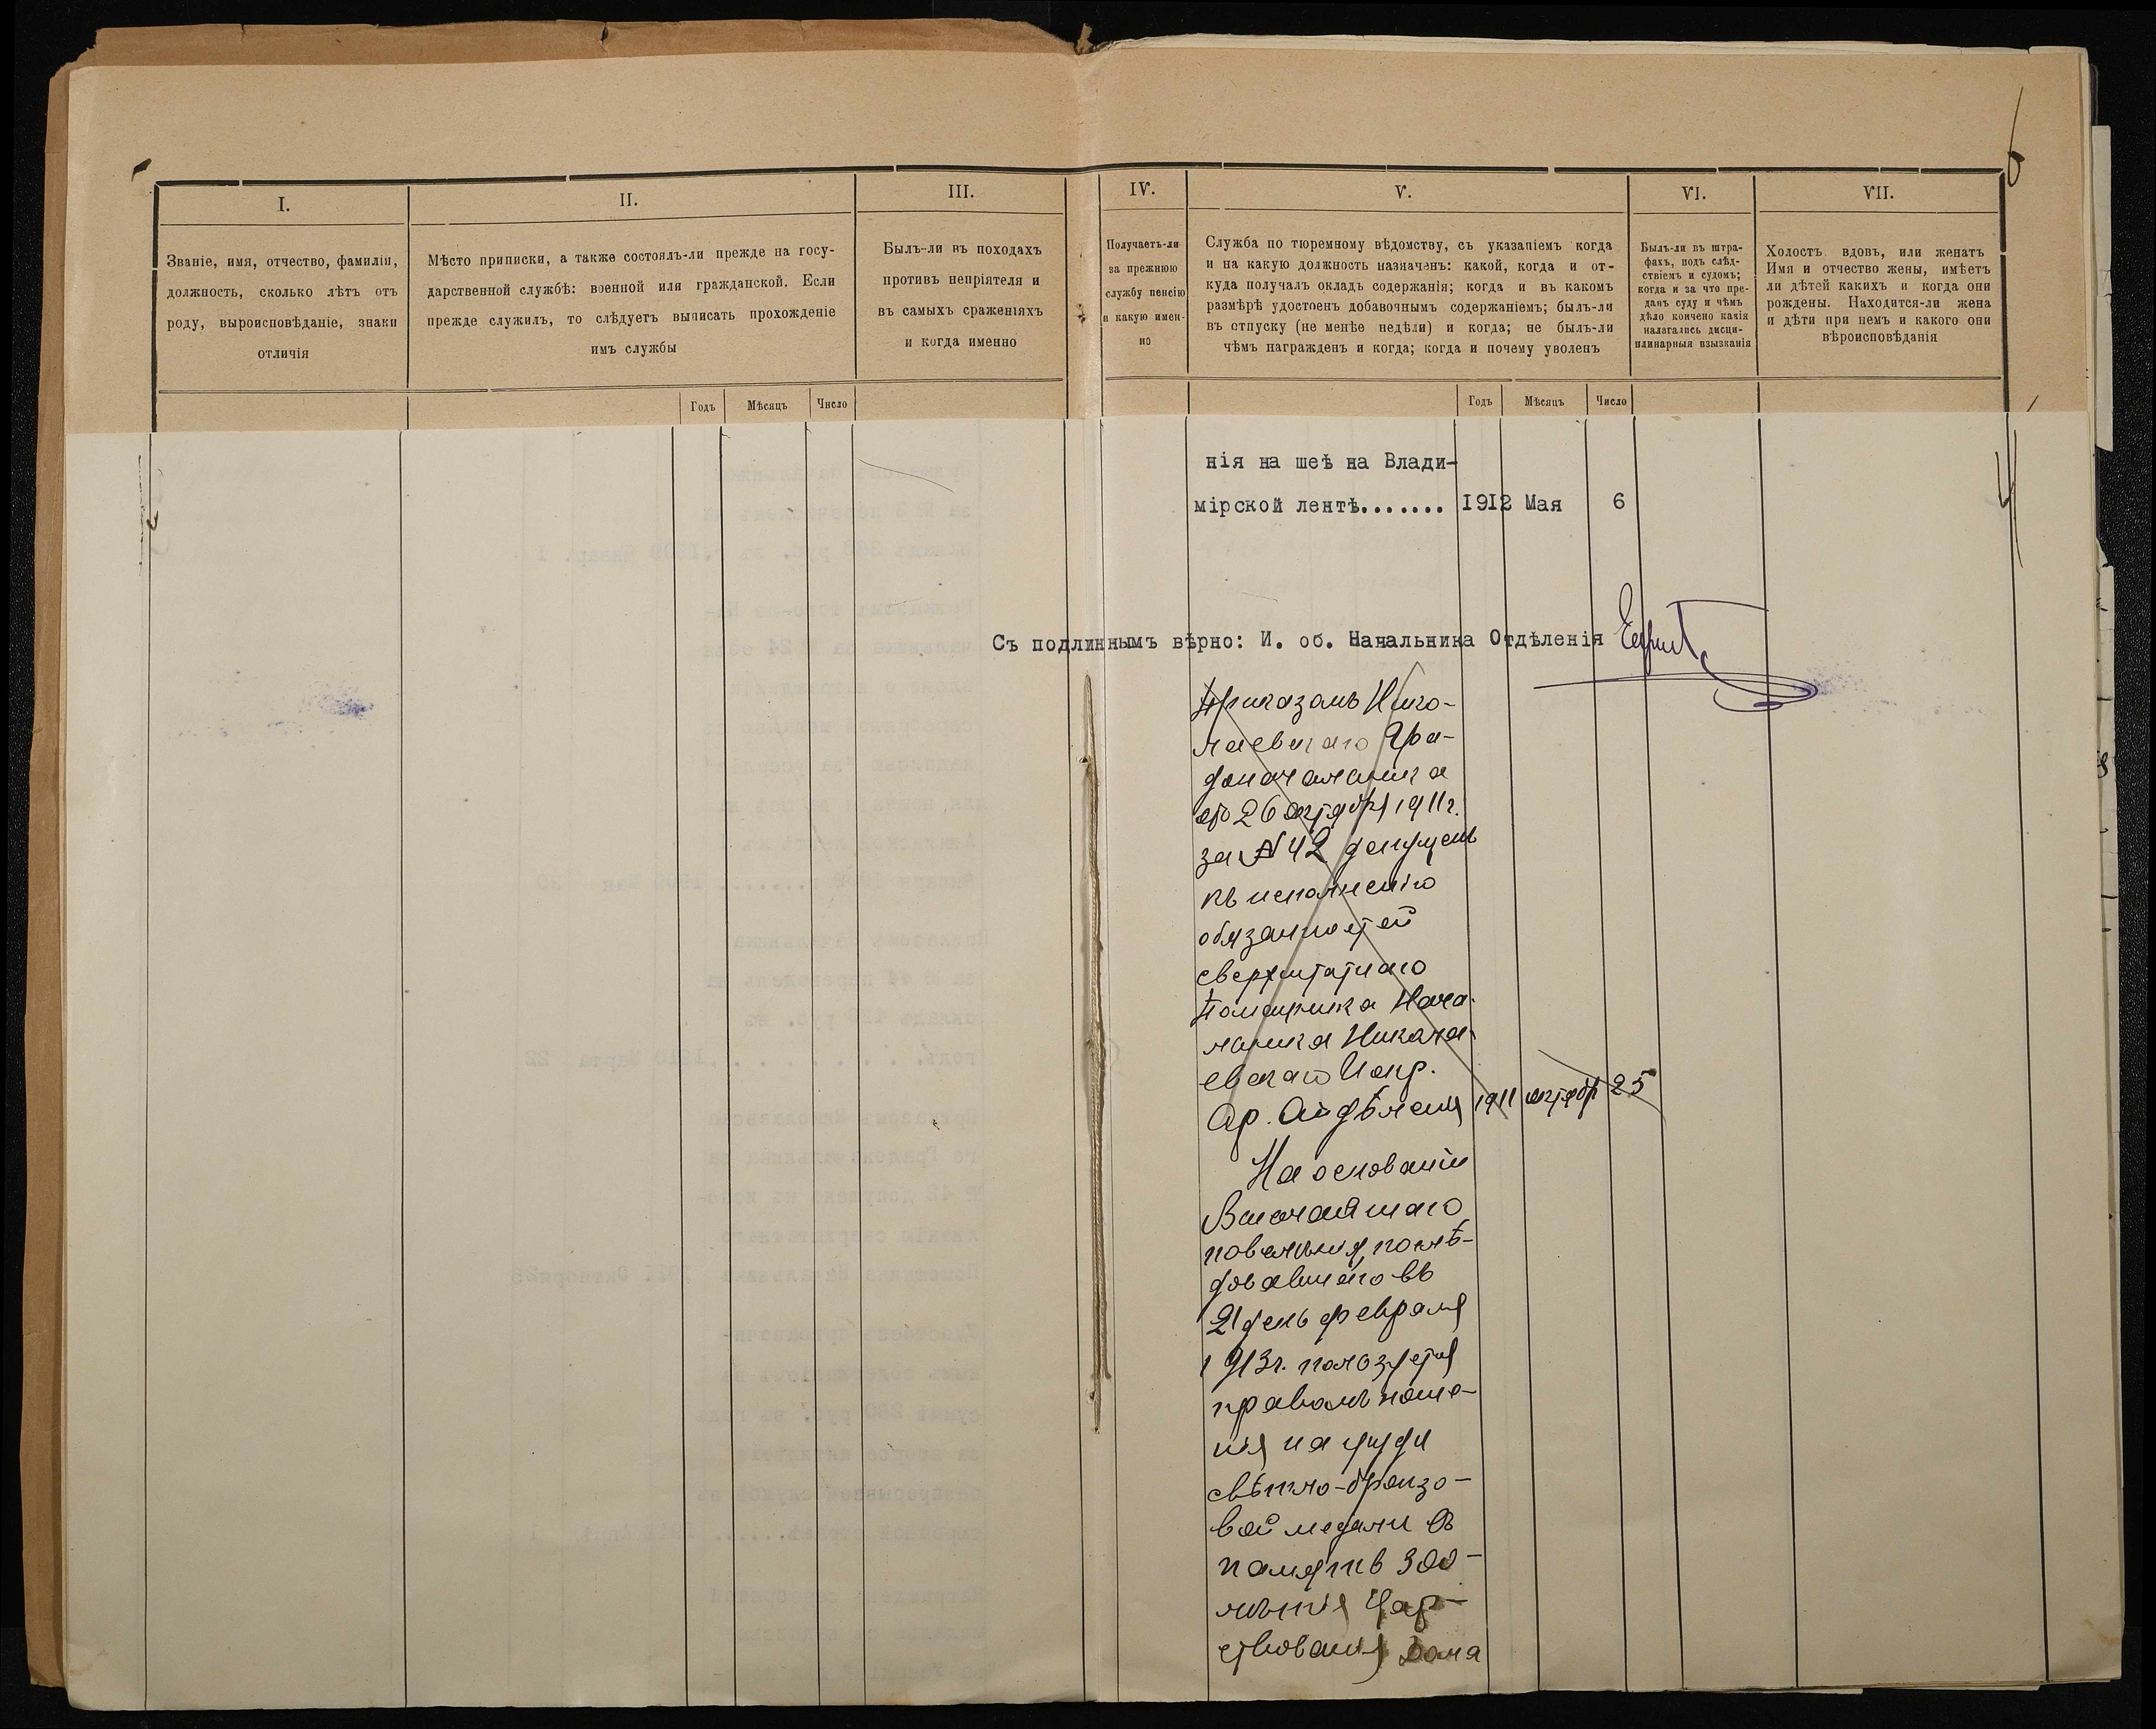 6
I.
II.
III.
IV.
V.
VI.
VII.
Званіе, имя, отчество, фамилія,
должность, сколько лѣтъ отъ
роду, выроисповѣданіе, знаки
отличія
Мѣсто приписки, а также состоялъ-ли прежде на госу-
дарственной службѣ: военной или гражданской. Если
прежде служилъ, то слѣдуетъ выписать прохожденіе
имъ службы
Былъ-ли въ походахъ
противъ непріятеля и
въ самыхъ сраженіяхъ
и когда именно
Получаетъ-ли
за прежнюю
службу пенсію
и какую имен-
но
Служба по тюремному вѣдомству, съ указаніемъ когда
и на какую должность назначенъ: какой, когда и от-
куда получалъ окладъ содержанія; когда и въ какомъ
размѣрѣ удостоенъ добавочнымъ содержаніемъ; былъ-ли
въ отпуску (не менѣе недѣли) и когда; не былъ-ли
чѣмъ награжденъ и когда; когда и почему уволенъ
Былъ-ли въ штра-
фахъ, подъ слѣд-
ствіемъ и судомъ;
когда и за что пре-
данъ суду и чѣмъ
дѣло кончено какія
налагались дисци-
плинарныя взысканія
Холостъ вдовъ, или женатъ
Имя и отчество жены, имѣетъ
ли дѣтей какихъ и когда они
рождены. Находится-ли жена
и дѣти при немъ и какого они
вѣроисповѣданія
Годъ Мѣсяцъ Число
Годъ Мѣсяцъ Число
нія на шеѣ на Влади-
мірской лентѣ....... 1912 Мая 6
Съ подлиннымъ вѣрно: И. об. Начальника Отдѣленія
Приказомъ Нико-
лаевскаго Гра-
доначальника
отъ 26 октября 1911 г.
за № 42 допущенъ
къ исполненію
обязанностей
сверхштатнаго
Помощника Нача-
льника Никола-
евскаго Испр.
Ар. Отдѣленія 1911 октябр 25
На основаніи
Высочайшаго
повелѣнія, послѣ-
довавшаго въ
21 день февраля
1913 г. пользуется
правомъ ноше-
нія на груди
свѣтло-бронзо-
вой медали въ
память 300-
лѣтія Цар-
ствованія Дома